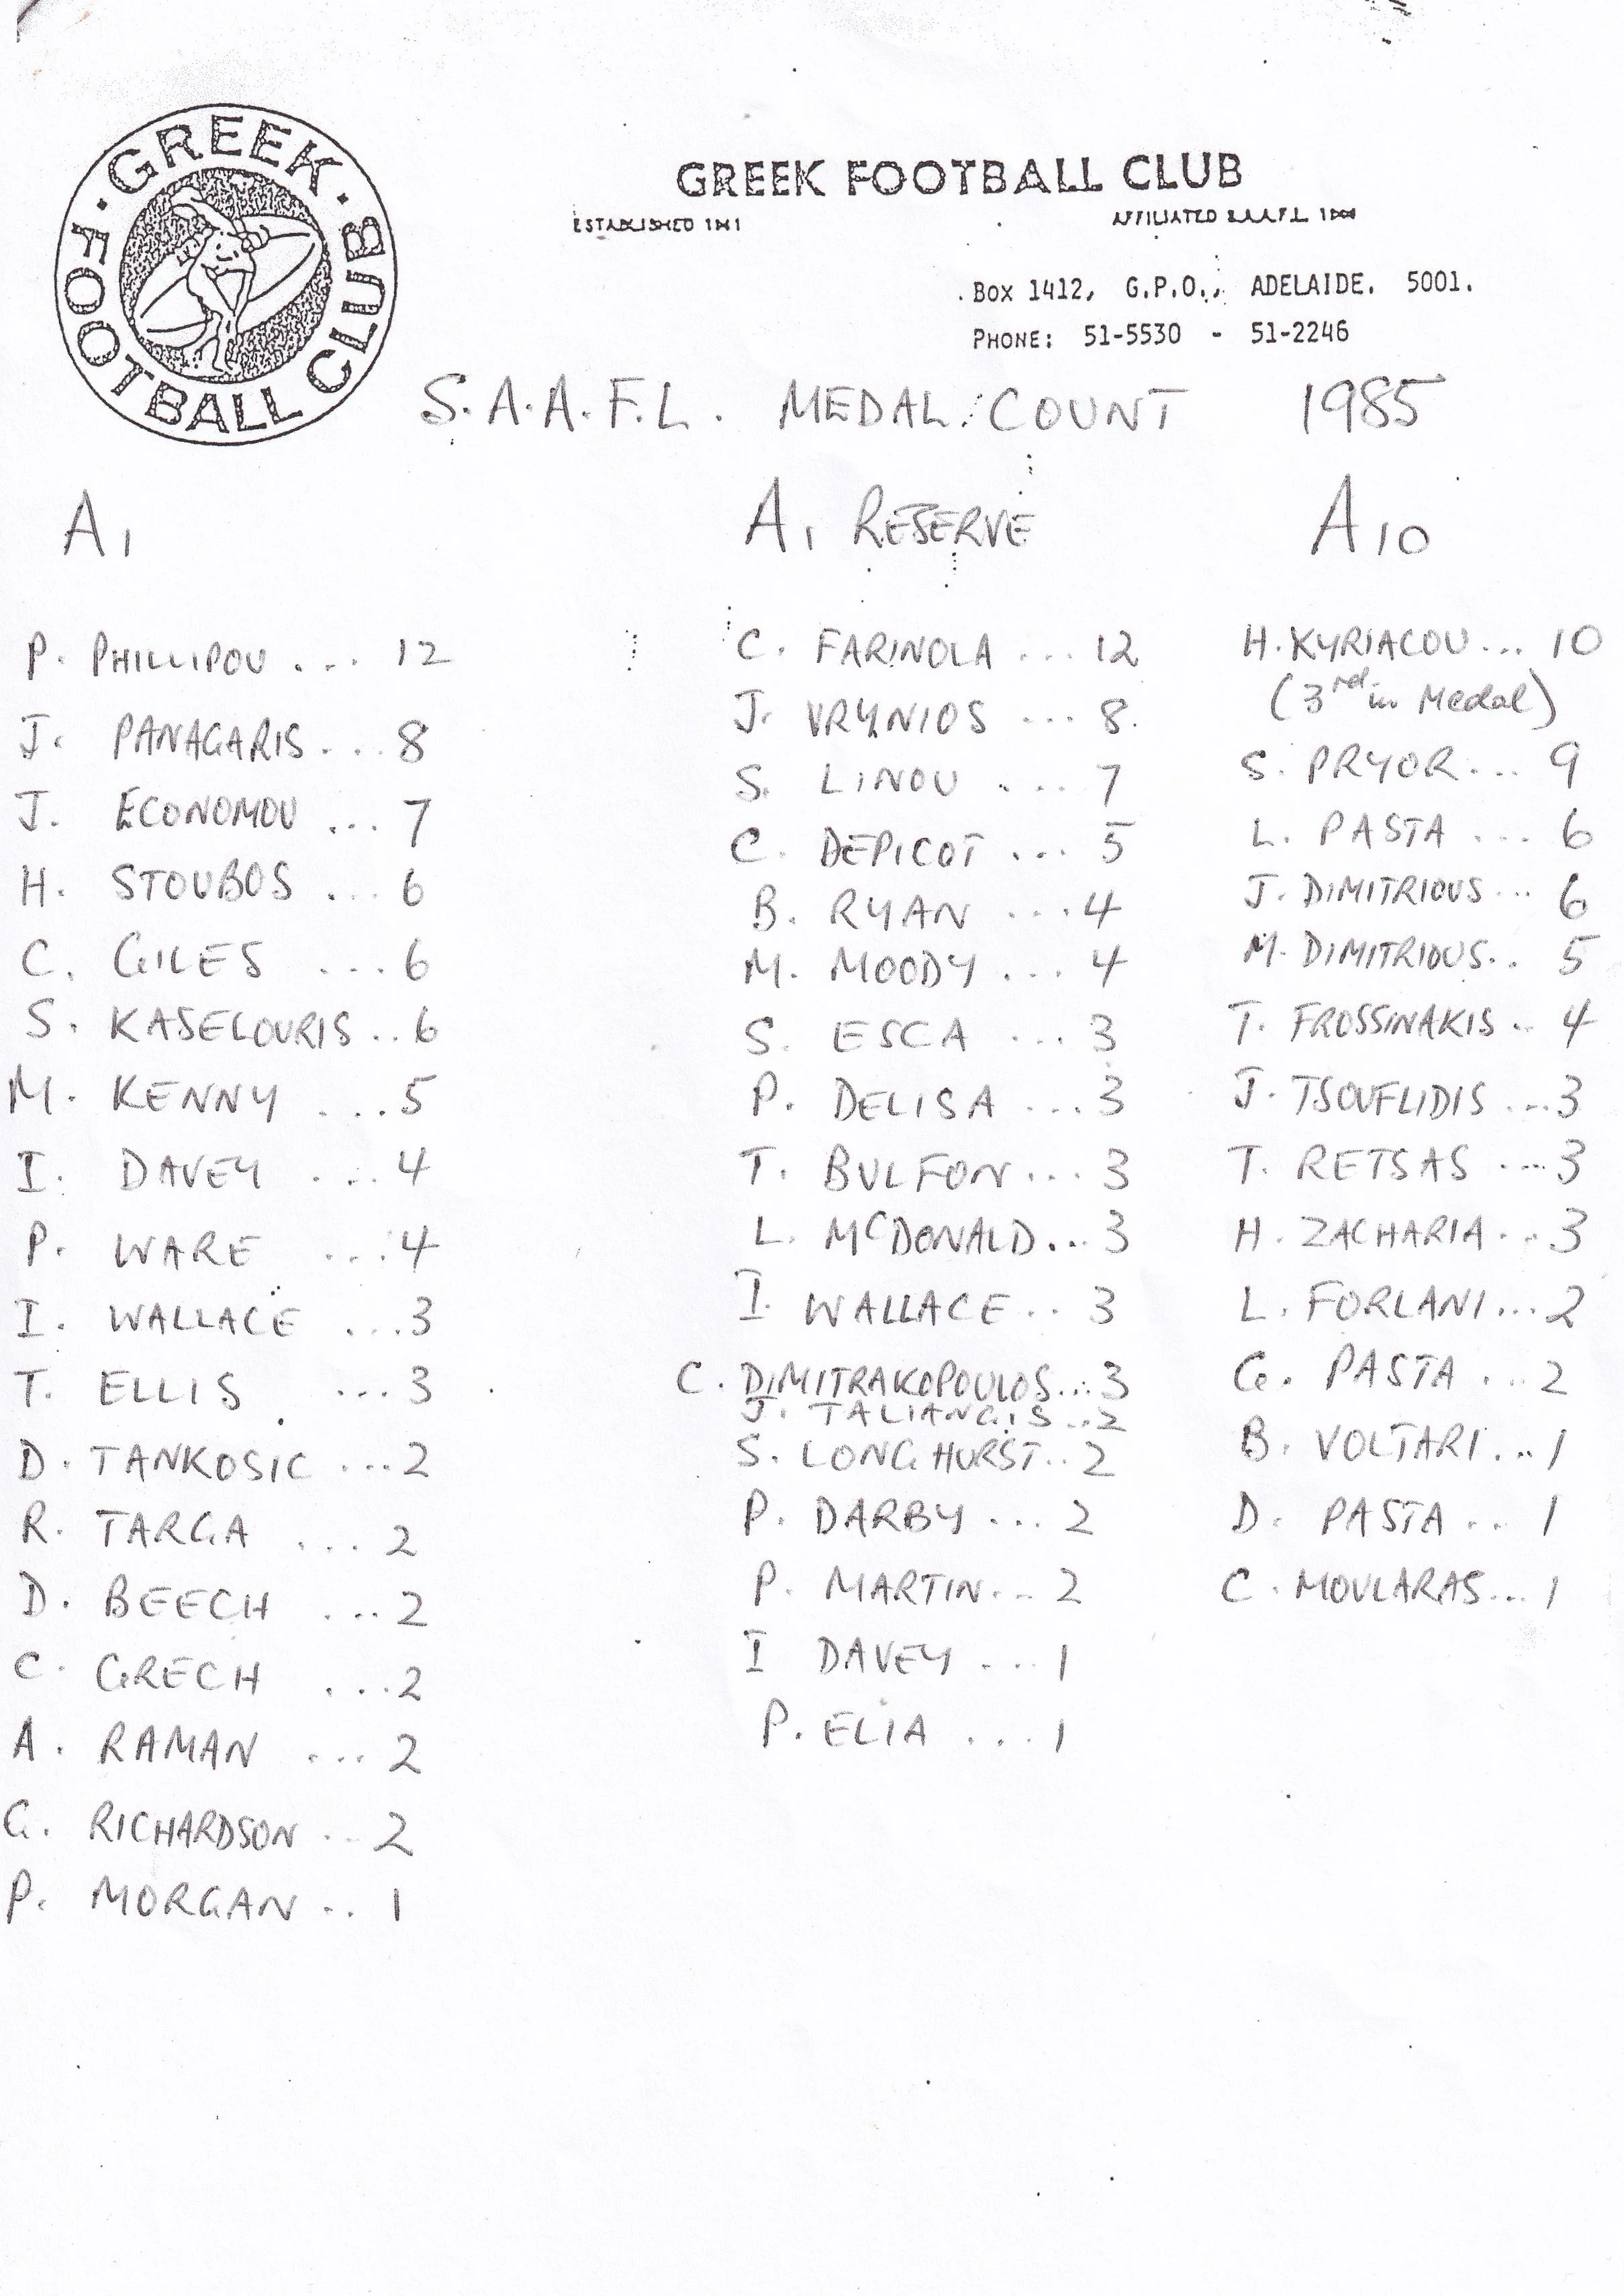 · GREEK · FOOTBALL CLUB
GREEK FOOTBALL CLUB
ESTABLISHED AFFILIATED S.A.A.F.L.
BOX 1412, G.P.O., ADELAIDE. 5001.
PHONE: 51-5530 - 51-2246
S.A.A.F.L. MEDAL COUNT 1985
A1
P. PHILLIPOU ... 12
J. PANAGARIS ... 8
J. ECONOMOU ... 7
H. STOUBOS ... 6
C. GILES ... 6
S. KASELOURIS .. 6
M. KENNY ... 5
I. DAVEY ... 4
P. WARE ... 4
I. WALLACE ... 3
T. ELLIS ... 3
D. TANKOSIC ... 2
R. TARGA ... 2
D. BEECH ... 2
C. GRECH ... 2
A. RAMAN ... 2
G. RICHARDSON .. 2
P. MORGAN .. 1
A1 RESERVE
C. FARINOLA ... 12
J. VRYNIOS ... 8
S. LINOU ... 7
C. DEPICOT ... 5
B. RYAN ... 4
M. MOODY ... 4
S. ESCA ... 3
P. DELISA ... 3
T. BULFON ... 3
L. McDONALD ... 3
I. WALLACE .. 3
C. DIMITRAKOPOULOS ... 3
J. TALIANGIS .. 2
S. LONGHURST .. 2
P. DARBY ... 2
P. MARTIN ... 2
I DAVEY ... 1
P. ELIA ... 1
A10
H. KYRIACOU ... 10
(3rd in Medal)
S. PRYOR ... 9
L. PASTA ... 6
J. DIMITRIOUS ... 6
M. DIMITRIOUS .. 5
T. FROSSINAKIS .. 4
J. TSOUFLIDIS ... 3
T. RETSAS ... 3
H. ZACHARIA ... 3
L. FORLANI ... 2
G. PASTA ... 2
B. VOLTARI ... 1
D. PASTA ... 1
C. MOULARAS ... 1